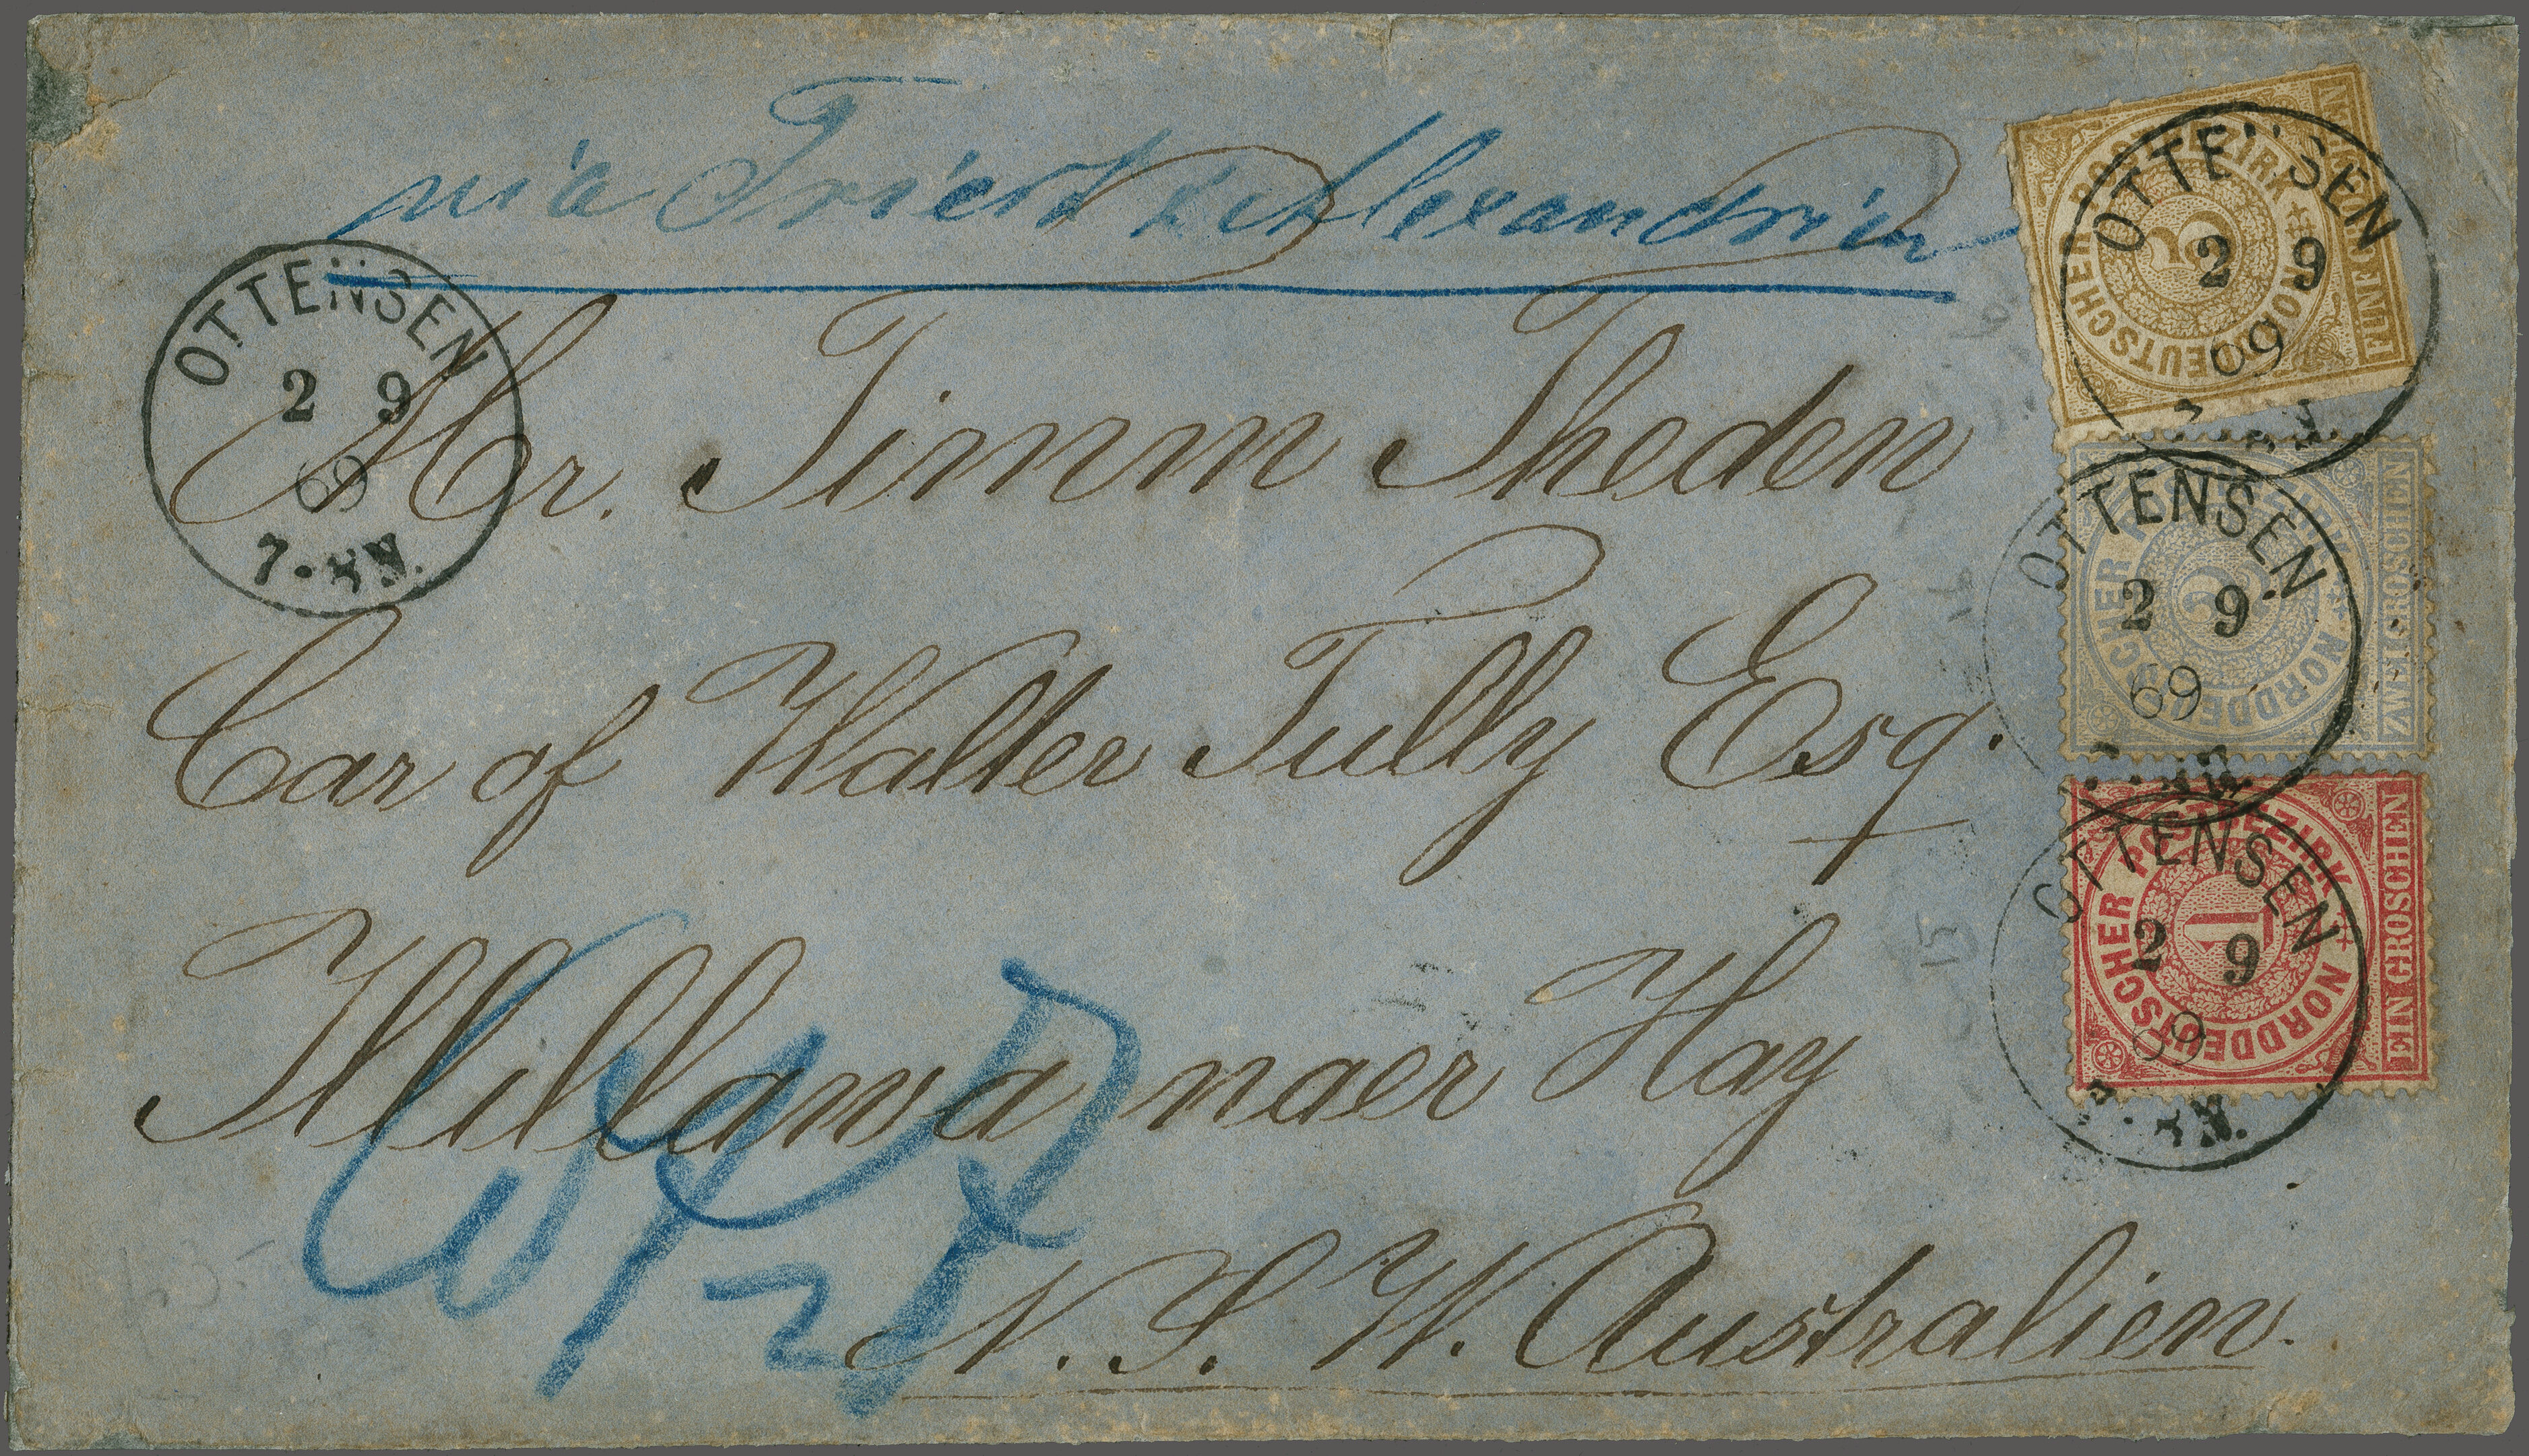 via Triest & Alexandrien
OTTENSEN
2 9
69
7-8 N.
Mr. Timm Theden
Car of Walter Tully Esq.
Illillawa naer Hay
N. S. W. Australien.
NORDDEUTSCHER POSTBEZIRK
5
FÜNF GROSCHEN
OTTENSEN
2 9
69
NORDDEUTSCHER POSTBEZIRK
2
ZWEI GROSCHEN
OTTENSEN
2 9
69
NORDDEUTSCHER POSTBEZIRK
1
EIN GROSCHEN
OTTENSEN
2 9
69
7-8 N.